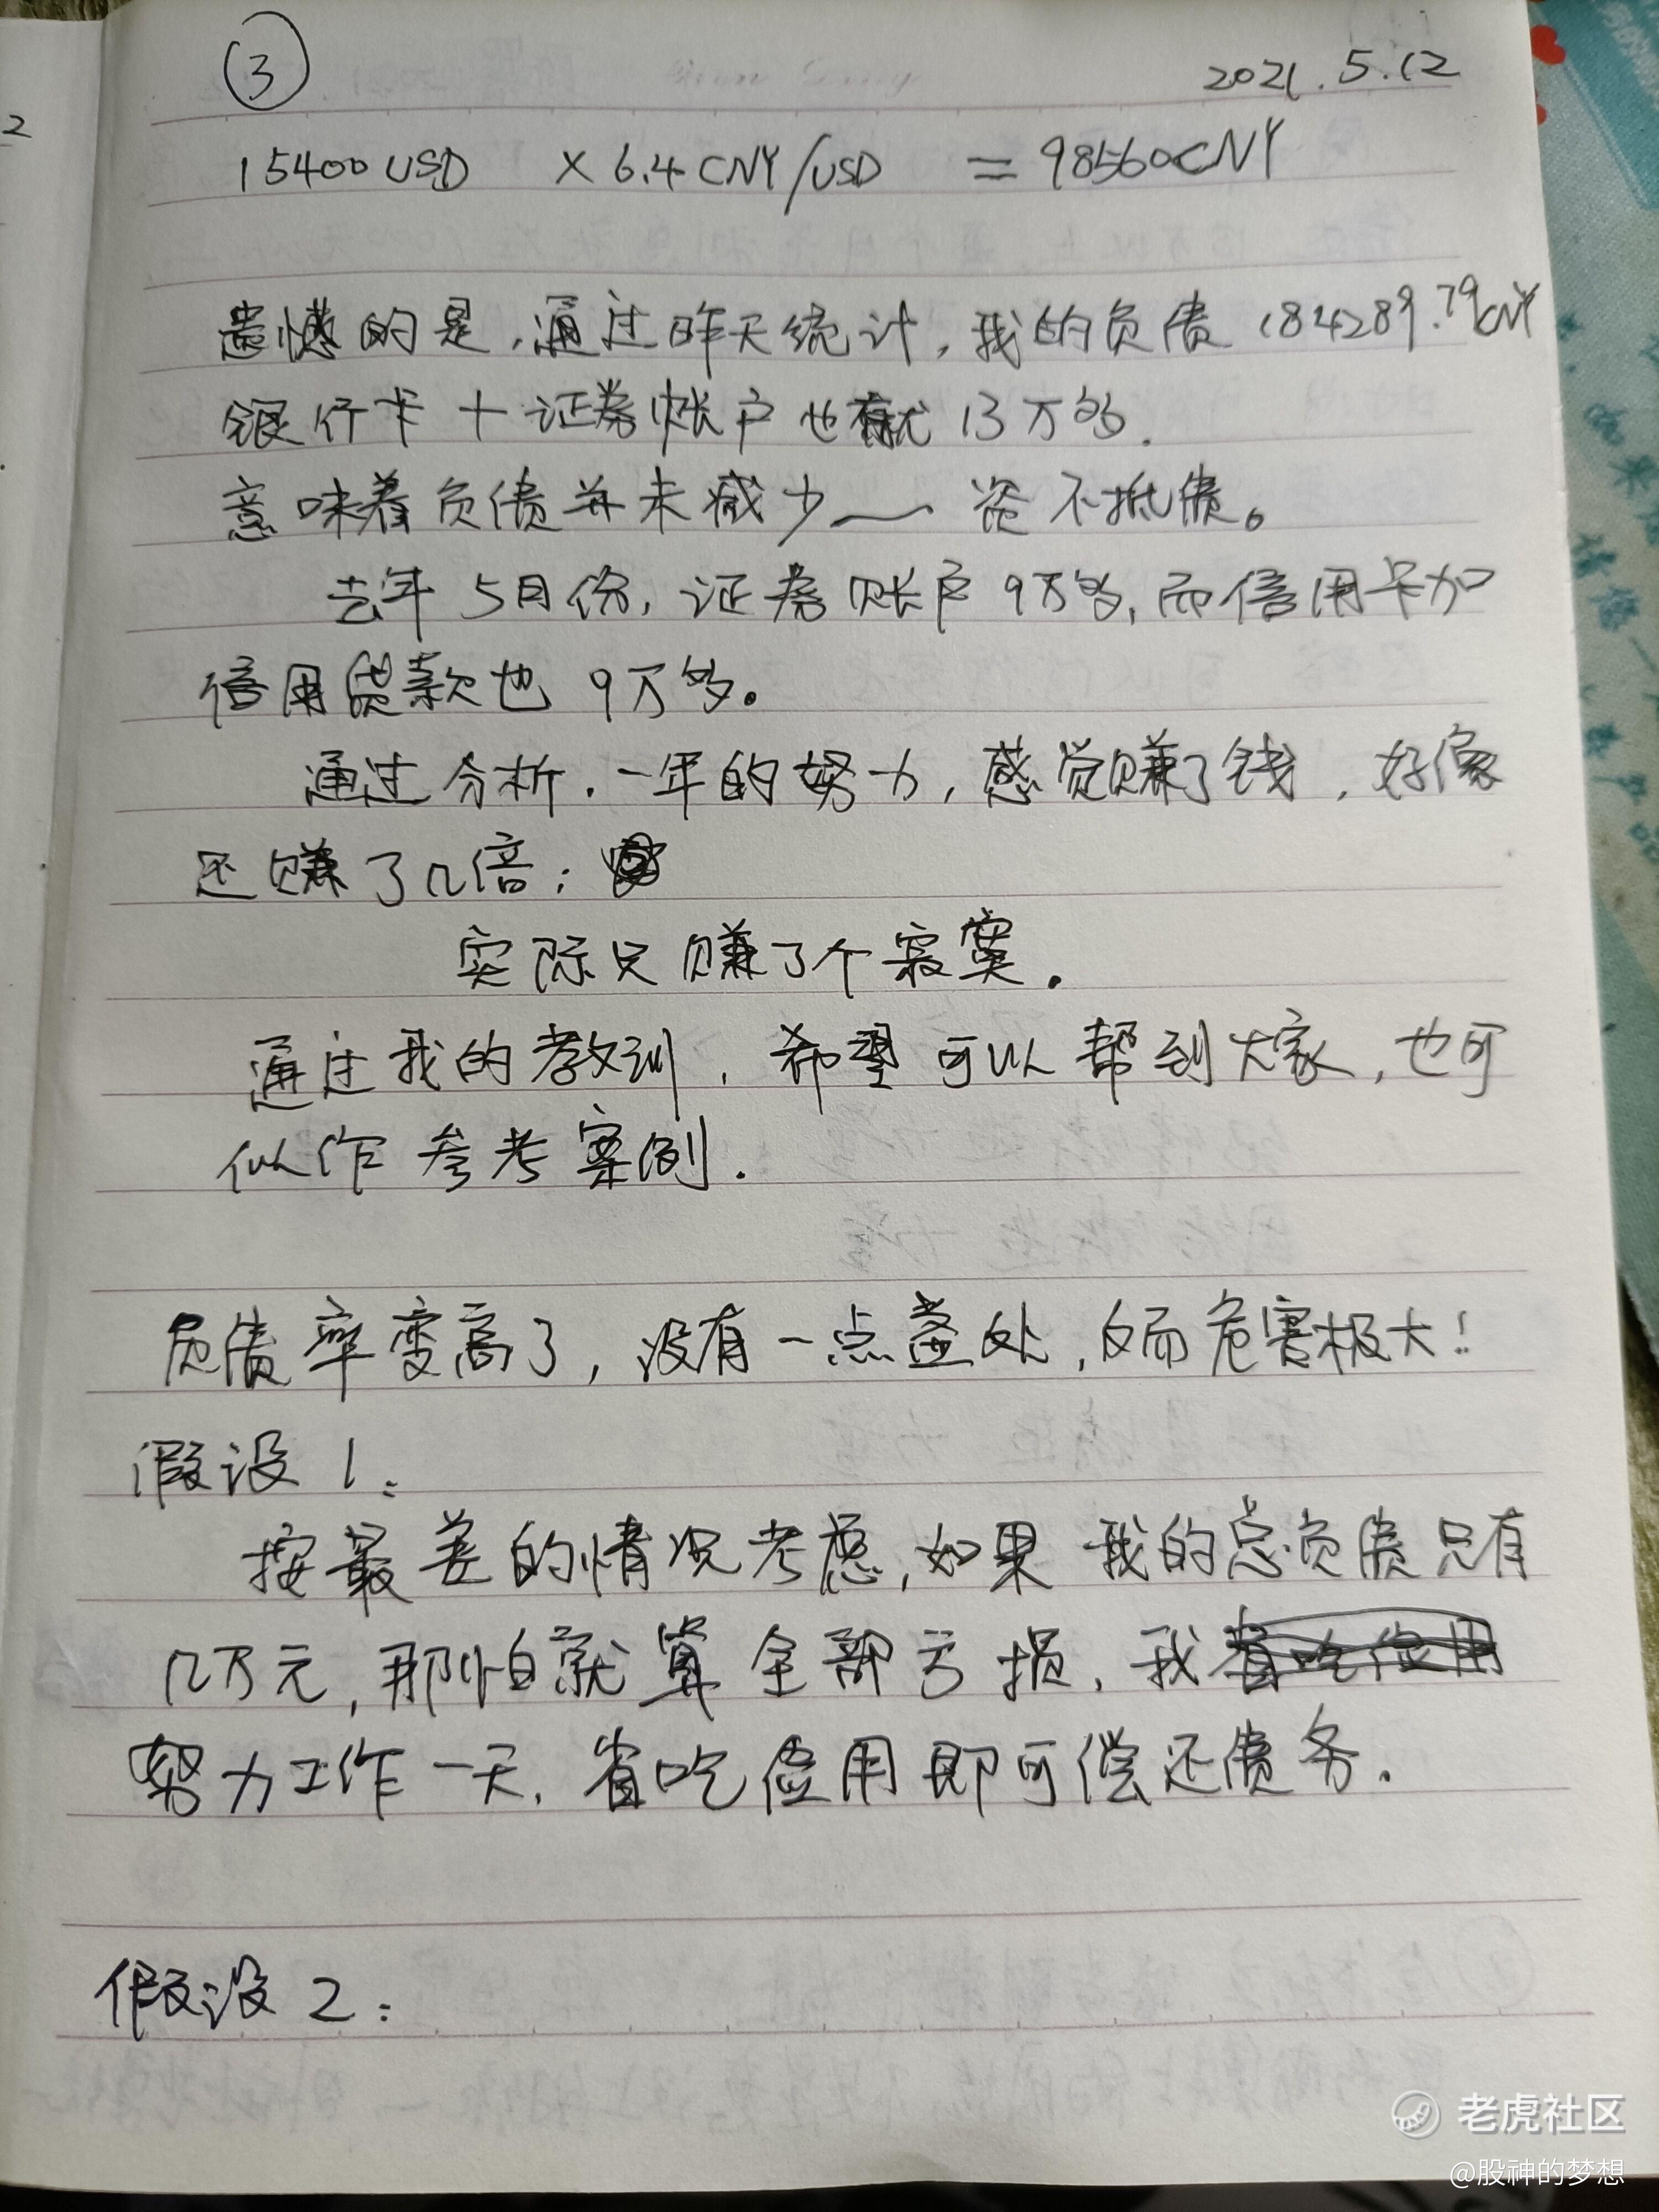 ③ 2021.5.12
2
15400USD ×6.4CNY/USD =98560CNY
遗憾的是,通过昨天统计,我的负债184289.79CNY
银行卡+证券帐户也就13万多.
意味着负债并未减少——资不抵债。
去年5月份,证券账户9万多,而信用卡加
信用贷款也9万多。
通过分析.一年的努力,感觉赚了钱,好像
还赚了几倍;
实际只赚了个寂寞.
通过我的教训,希望可以帮到大家,也可
以作参考案例.
负债率变高了,没有一点益处,反而危害极大!
假设1:
按最差的情况考虑,如果我的总负债只有
几万元,那怕就算全部亏损,我
努力工作一天,省吃俭用即可偿还债务.
假设2:
老虎社区
@股神的梦想